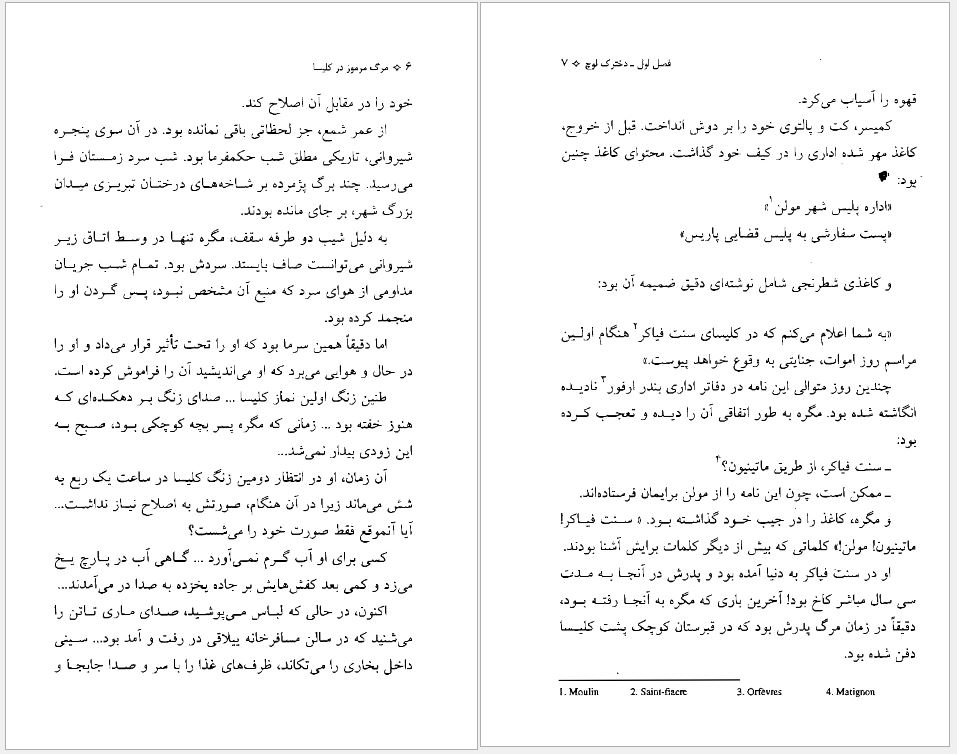 ۶ ❖ مرگ مرموز در کلیسا
خود را در مقابل آن اصلاح کند.
از عمر شمع، جز لحظاتی باقی نمانده بود. در آن سوی پنجره
شیروانی، تاریکی مطلق شب حکمفرما بود. شب سرد زمستان فرا
می‌رسید. چند برگ پژمرده بر شاخه‌های درختان تبریزی میدان
بزرگ شهر، بر جای مانده بودند.
به دلیل شیب دو طرفه سقف، مگره تنها در وسط اتاق زیر
شیروانی می‌توانست صاف بایستد. سردش بود. تمام شب جریان
مداومی از هوای سرد که منبع آن مشخص نبود، پس گردن او را
منجمد کرده بود.
اما دقیقاً همین سرما بود که او را تحت تأثیر قرار می‌داد و او را
در حال و هوایی می‌برد که او می‌اندیشید آن را فراموش کرده است.
طنین زنگ اولین نماز کلیسا ... صدای زنگ بر دهکده‌ای که
هنوز خفته بود ... زمانی که مگره پسر بچه کوچکی بود، صبح به
این زودی بیدار نمی‌شد...
آن زمان، او در انتظار دومین زنگ کلیسا در ساعت یک ربع به
شش می‌ماند زیرا در آن هنگام، صورتش به اصلاح نیاز نداشت...
آیا آنموقع فقط صورت خود را می‌شست؟
کسی برای او آب گرم نمی‌آورد ... گاهی آب در پارچ یخ
می‌زد و کمی بعد کفش‌هایش بر جاده یخزده به صدا در می‌آمدند...
اکنون، در حالی که لباس می‌پوشید، صدای ماری تاتن را
می‌شنید که در سالن مسافرخانه ییلاقی در رفت و آمد بود... سینی
داخل بخاری را می‌تکاند، ظرف‌های غذا را با سر و صدا جابجا و
فصل اول ـ دخترک لوچ ❖ ۷
قهوه را آسیاب می‌کرد.
کمیسر، کت و پالتوی خود را بر دوش انداخت. قبل از خروج،
کاغذ مهر شده اداری را در کیف خود گذاشت. محتوای کاغذ چنین
بود:
«اداره پلیس شهر مولن۱»
«پست سفارشی به پلیس قضایی پاریس»
و کاغذی شطرنجی شامل نوشته‌ای دقیق ضمیمه آن بود:
«به شما اعلام می‌کنم که در کلیسای سنت فیاکر۲ هنگام اولین
مراسم روز اموات، جنایتی به وقوع خواهد پیوست.»
چندین روز متوالی این نامه در دفاتر اداری بندر ارفور۳ نادیده
انگاشته شده بود. مگره به طور اتفاقی آن را دیده و تعجب کرده
بود:
ـ سنت فیاکر، از طریق ماتینیون؟۴
ـ ممکن است، چون این نامه را از مولن برایمان فرستاده‌اند.
و مگره، کاغذ را در جیب خود گذاشته بود. « سنت فیاکر!
ماتینیون! مولن!» کلماتی که بیش از دیگر کلمات برایش آشنا بودند.
او در سنت فیاکر به دنیا آمده بود و پدرش در آنجا به مدت
سی سال مباشر کاخ بود! آخرین باری که مگره به آنجا رفته بود،
دقیقاً در زمان مرگ پدرش بود که در قبرستان کوچک پشت کلیسا
دفن شده بود.
1. Moulin 2. Saint-fiacre 3. Orfèvres 4. Matignon